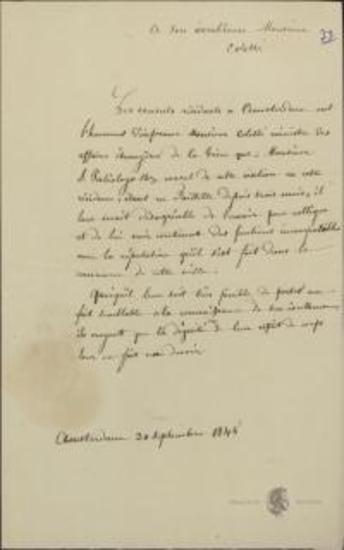 A Son Excellence Monsieur
Coletti
Les consuls résidents à Amsterdam ont
l'honneur d'informer Monsieur Coletti ministre des
affaires étrangères de la Grèce que Monsieur
consul de cette nation en cette
résidence, étant en faillite depuis trois mois, il
leur serait désagréable de l'avoir pour collègue
et de lui voir continuer des fonctions incompatibles
avec la réputation qu'il s'est fait dans le
commerce de cette ville.
Quoiqu'il leur soit très pénible de porter un
fait semblable à la connaissance de Son Excellence
ils croyent que la dignité de leur esprit de corps
leur en fait un devoir
Amsterdam 30 septembre 1844